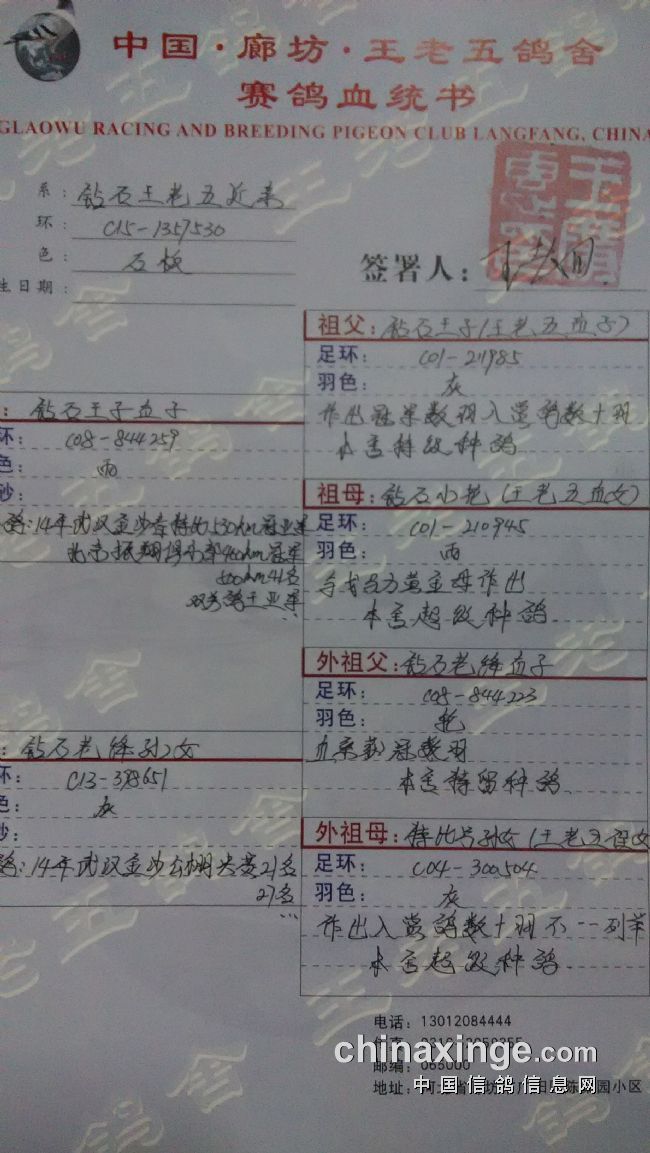 中国·廊坊·王老五鸽舍
赛鸽血统书
GLAOWU RACING AND BREEDING PIGEON CLUB LANGFANG, CHINA
系: 钻石王老五近亲
环: C15-1357530
色: 石板
生日期:
签署人:
祖父: 钻石王子(王老五直子)
足环: C01-211985
羽色: 灰
作出冠军数羽入赏鸽数十羽
本舍特级种鸽
: 钻石王子直子
环: C08-844259
色: 雨
砂:
14年武汉金沙春特比530km冠亚军
480km冠军
500km 41名
双关鸽王亚军
祖母: 钻石小花(王老五直女)
足环: C01-210945
羽色: 雨
作出
本舍超级种鸽
外祖父: 钻石老绛直子
足环: C08-844223
羽色: 花
直系获冠数羽
本舍特留种鸽
: 钻石老绛孙女
环: C13-398651
色: 灰
沙:
鸽: 14年武汉金沙公棚决赛21名
27名
外祖母: 特比号孙女(王老五
足环: C04-300504
羽色: 灰
作出入赏鸽数十羽不一列举
本舍超级种鸽
电话: 13012084444
chinaxinge.com
邮编: 065000
地址:
中国信鸽信息网
园小区